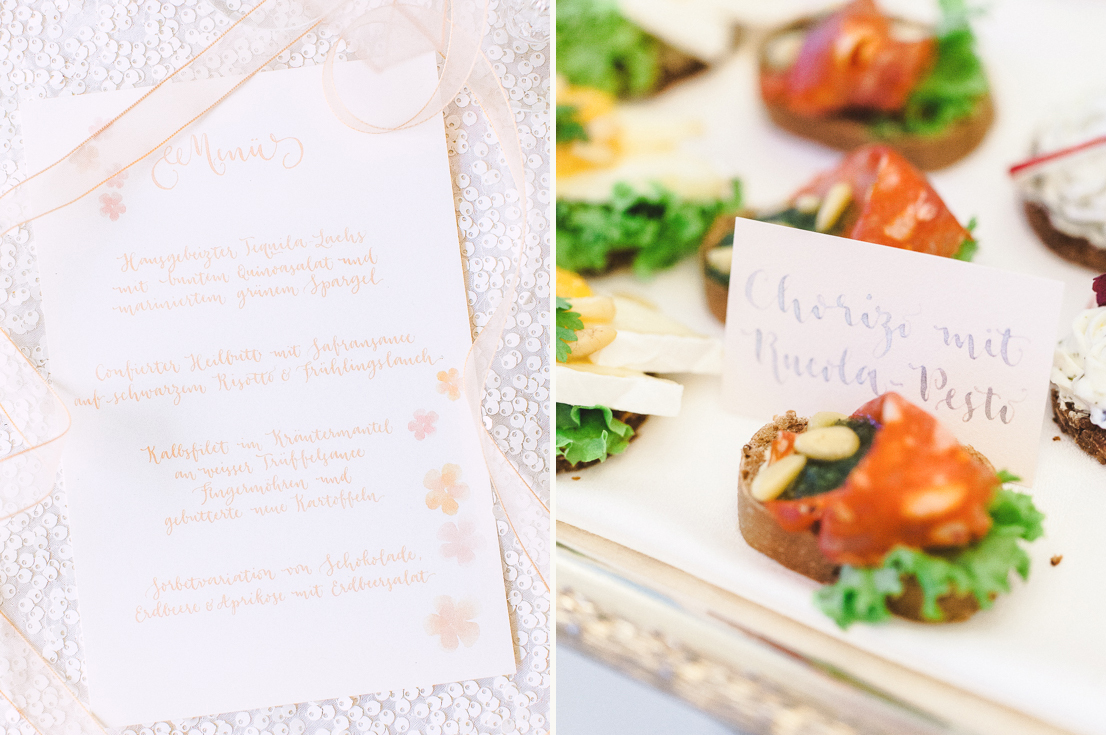 Menü
Hausgebeizter Tequila-Lachs
mit buntem Quinoasalat und
mariniertem grünem Spargel
Confierter Heilbutt mit Safransauce
auf schwarzem Risotto & Frühlingslauch
Kalbsfilet im Kräutermantel
an weisser Trüffelsauce
Fingermöhren und
gebutterte neue Kartoffeln
Sorbetvariation von Schokolade,
Erdbeere & Aprikose mit Erdbeersalat
Chorizo mit
Rucola-Pesto